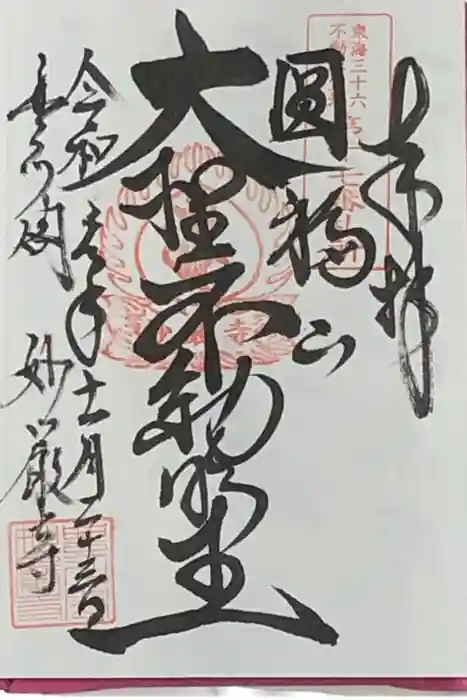 奉拝
東海三十六
不動
圓福山
大聖不動明王
令和元年十一月二十三日
豊川閣 妙厳寺